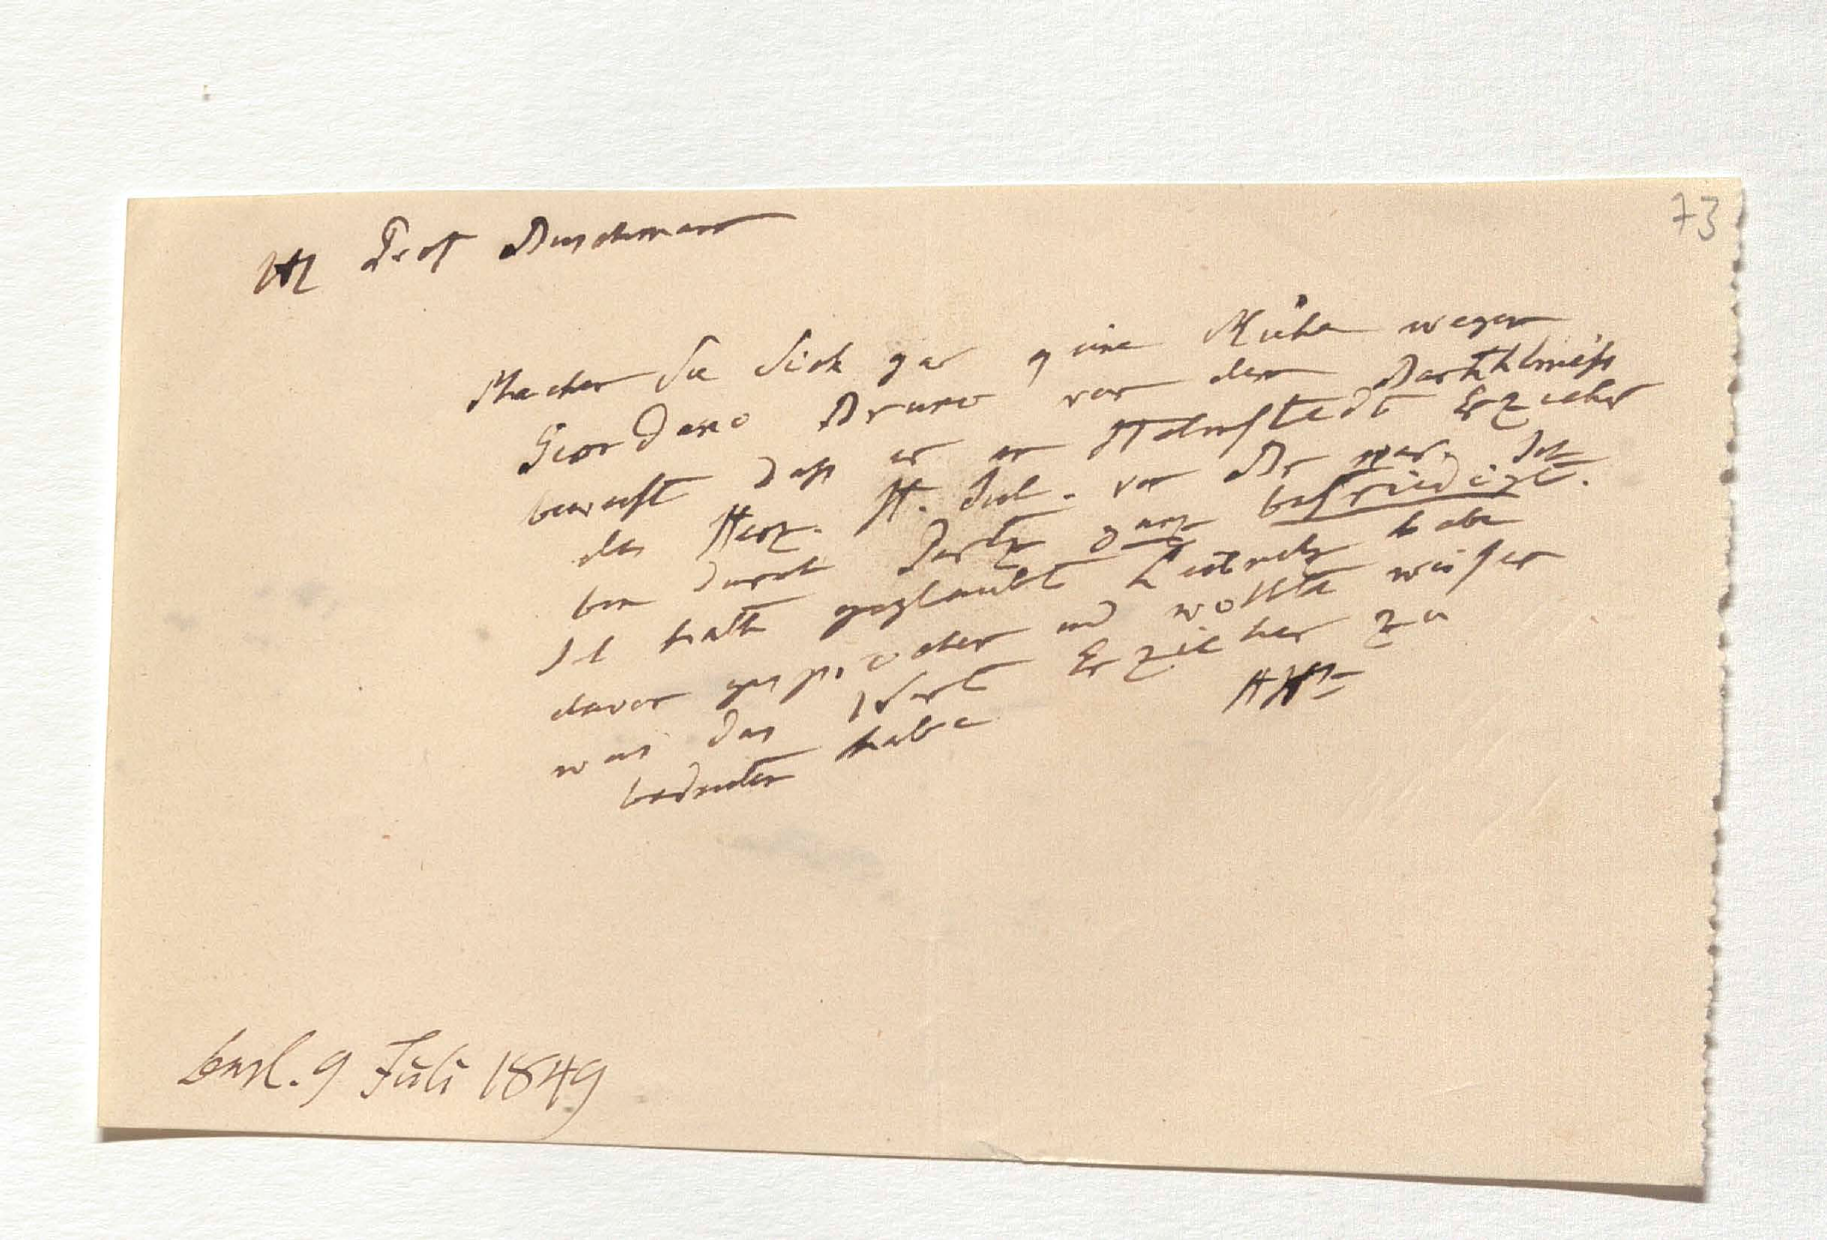 73
H Prof Buschmann
Machen Sie Sich gar keine Mühe wegen
Giordano Bruno von dem Bartholmeß
beweist daß er in Helmstedt Erzieher
des Herz. H. Jul. von Br war. Ich
bin durch ganz befriedigt.
Ich hatte geglaubt Leibnitz habe
davon gesprochen und wollte wissen
was das Wort Erzieher zu
bedeuten habe
AHt
empf. 9 Juli 1849